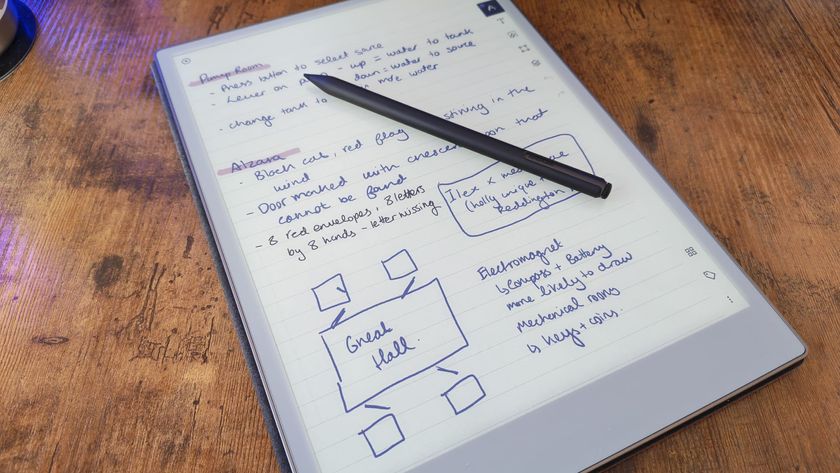 Pump Room
- Press button to select same
- Lever on - up = water to tank
down = water to source
- change tank to more water
Alzara
- Black cat, red flag stirring in the
wind
- Door marked with crescent moon that
cannot be found
- 8 red envelopes, 8 letters
by 8 hands - letter missing
Ilex x
(holly unique
Reddington
Electromagnet
↳ Compass + Battery
more likely to draw
Mechanical rooms
↳ keys + coins.
Great
Hall.
A
T